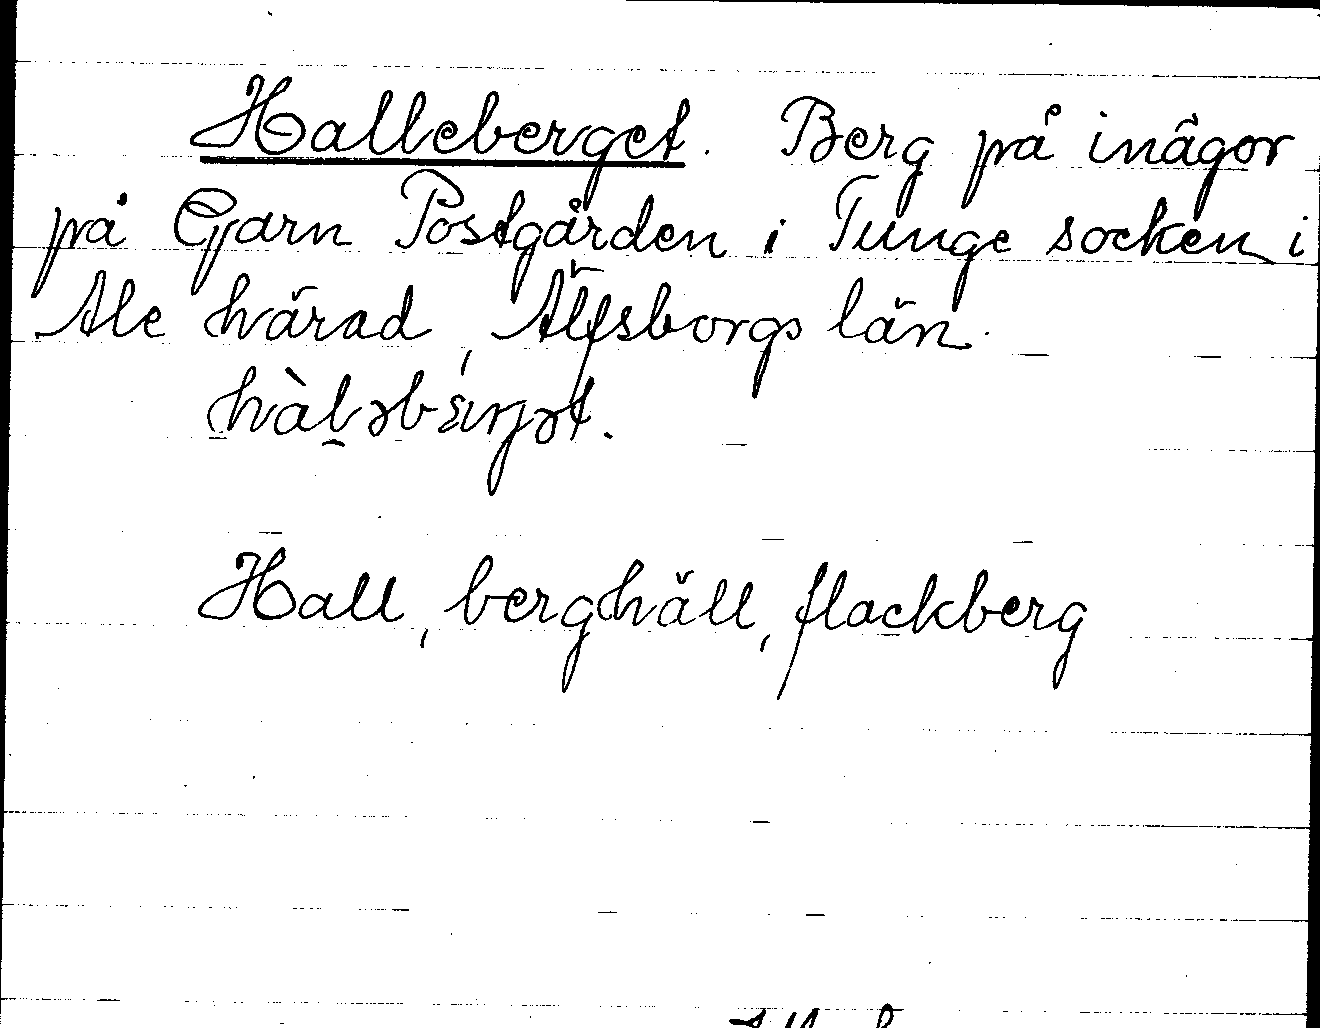 Halleberget. Berg på inägor
på Garn Postgården i Tunge socken i
Ale härad, Älfsborgs län.
Hall, berghäll, flackberg